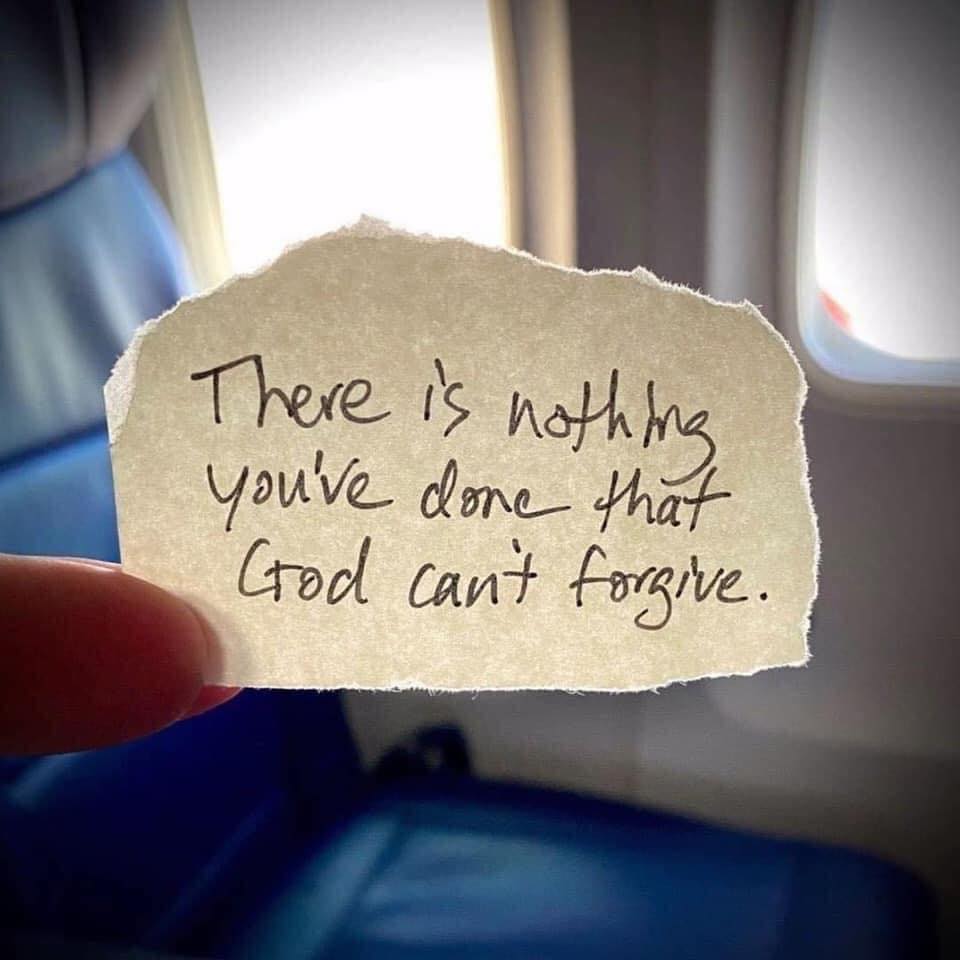 There is nothing
you've done that
God can't forgive.